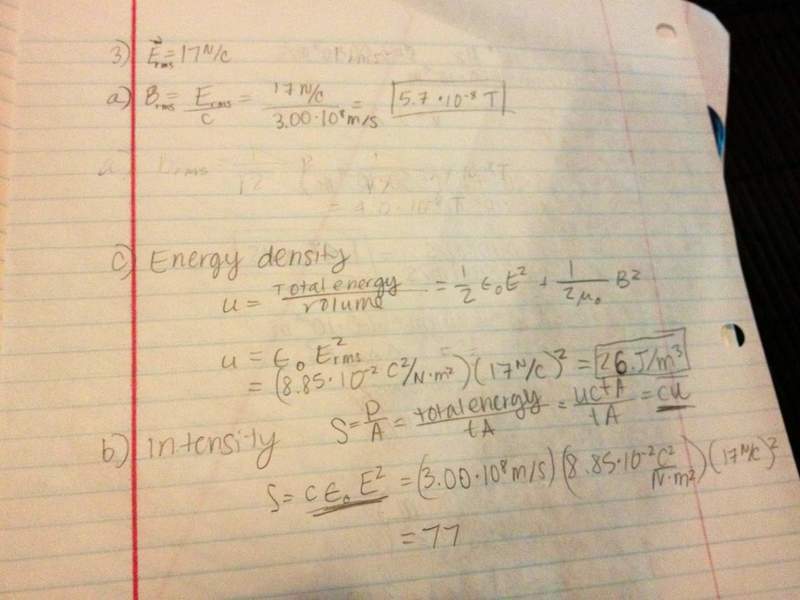 3) E⃗rms = 17 N/C
a) Brms = Erms/C = 17 N/C / 3.00·10⁸ m/s = 5.7·10⁻⁸ T
c) Energy density
u = Total energy / volume = 1/2 ϵ₀E² + 1/2μ₀ B²
u = ϵ₀ E²rms
= (8.85·10⁻² C²/N·m²)(17 N/C)² = 26. J/m³
S = P/A = total energy / tA = uctA / tA = cu
b) intensity
S = cϵ₀E² = (3.00·10⁸ m/s)(8.85·10⁻² C²/N·m²)(17 N/C)²
= 77